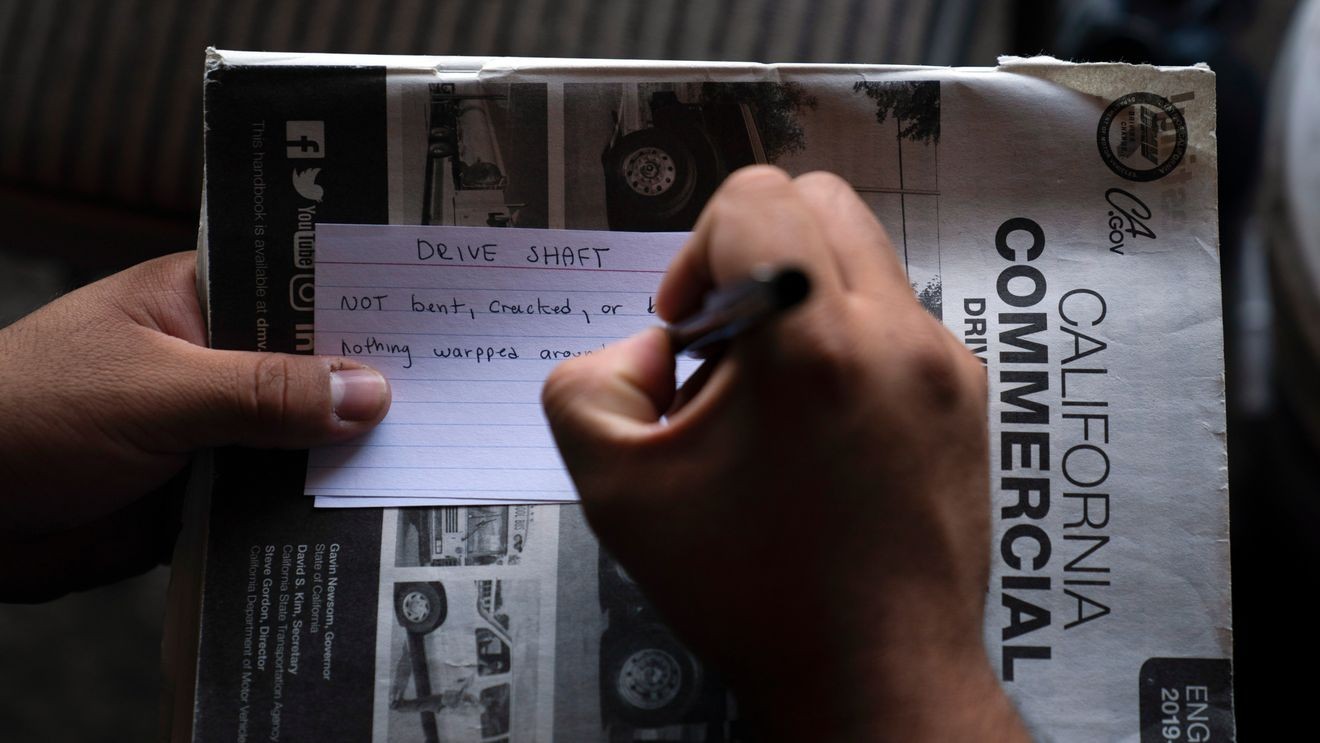 DRIVE SHAFT
NOT bent, cracked, or
Nothing warpped
CALIFORNIA
COMMERCIAL
CA
.GOV
ENG
2019-
YouTube
This handbook is available at dmv.
Gavin Newsom, Governor
State of California
David S. Kim, Secretary
California State Transportation Agency
Steve Gordon, Director
California Department of Motor Vehicle